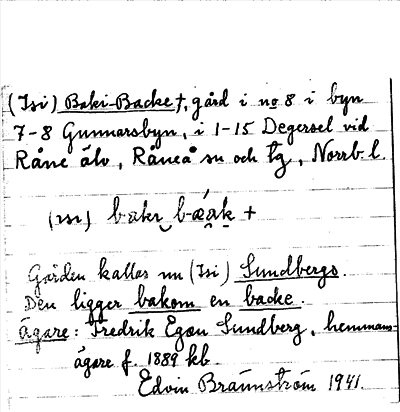 (Isi) Baki-Backe †, gård i no 8 i byn
7-8 Gunnarsbyn, i 1-15 Degersel vid
Råne älv, Råneå sn och tg, Norrb. l.
(ısı) bakı‿bæak +
Gården kallas nu (Isi) Sundbergs.
Den ligger bakom en backe.
Ägare: Fredrik Egon Sundberg, hemmans-
ägare f. 1889 kb.
Edvin Brännström 1941.